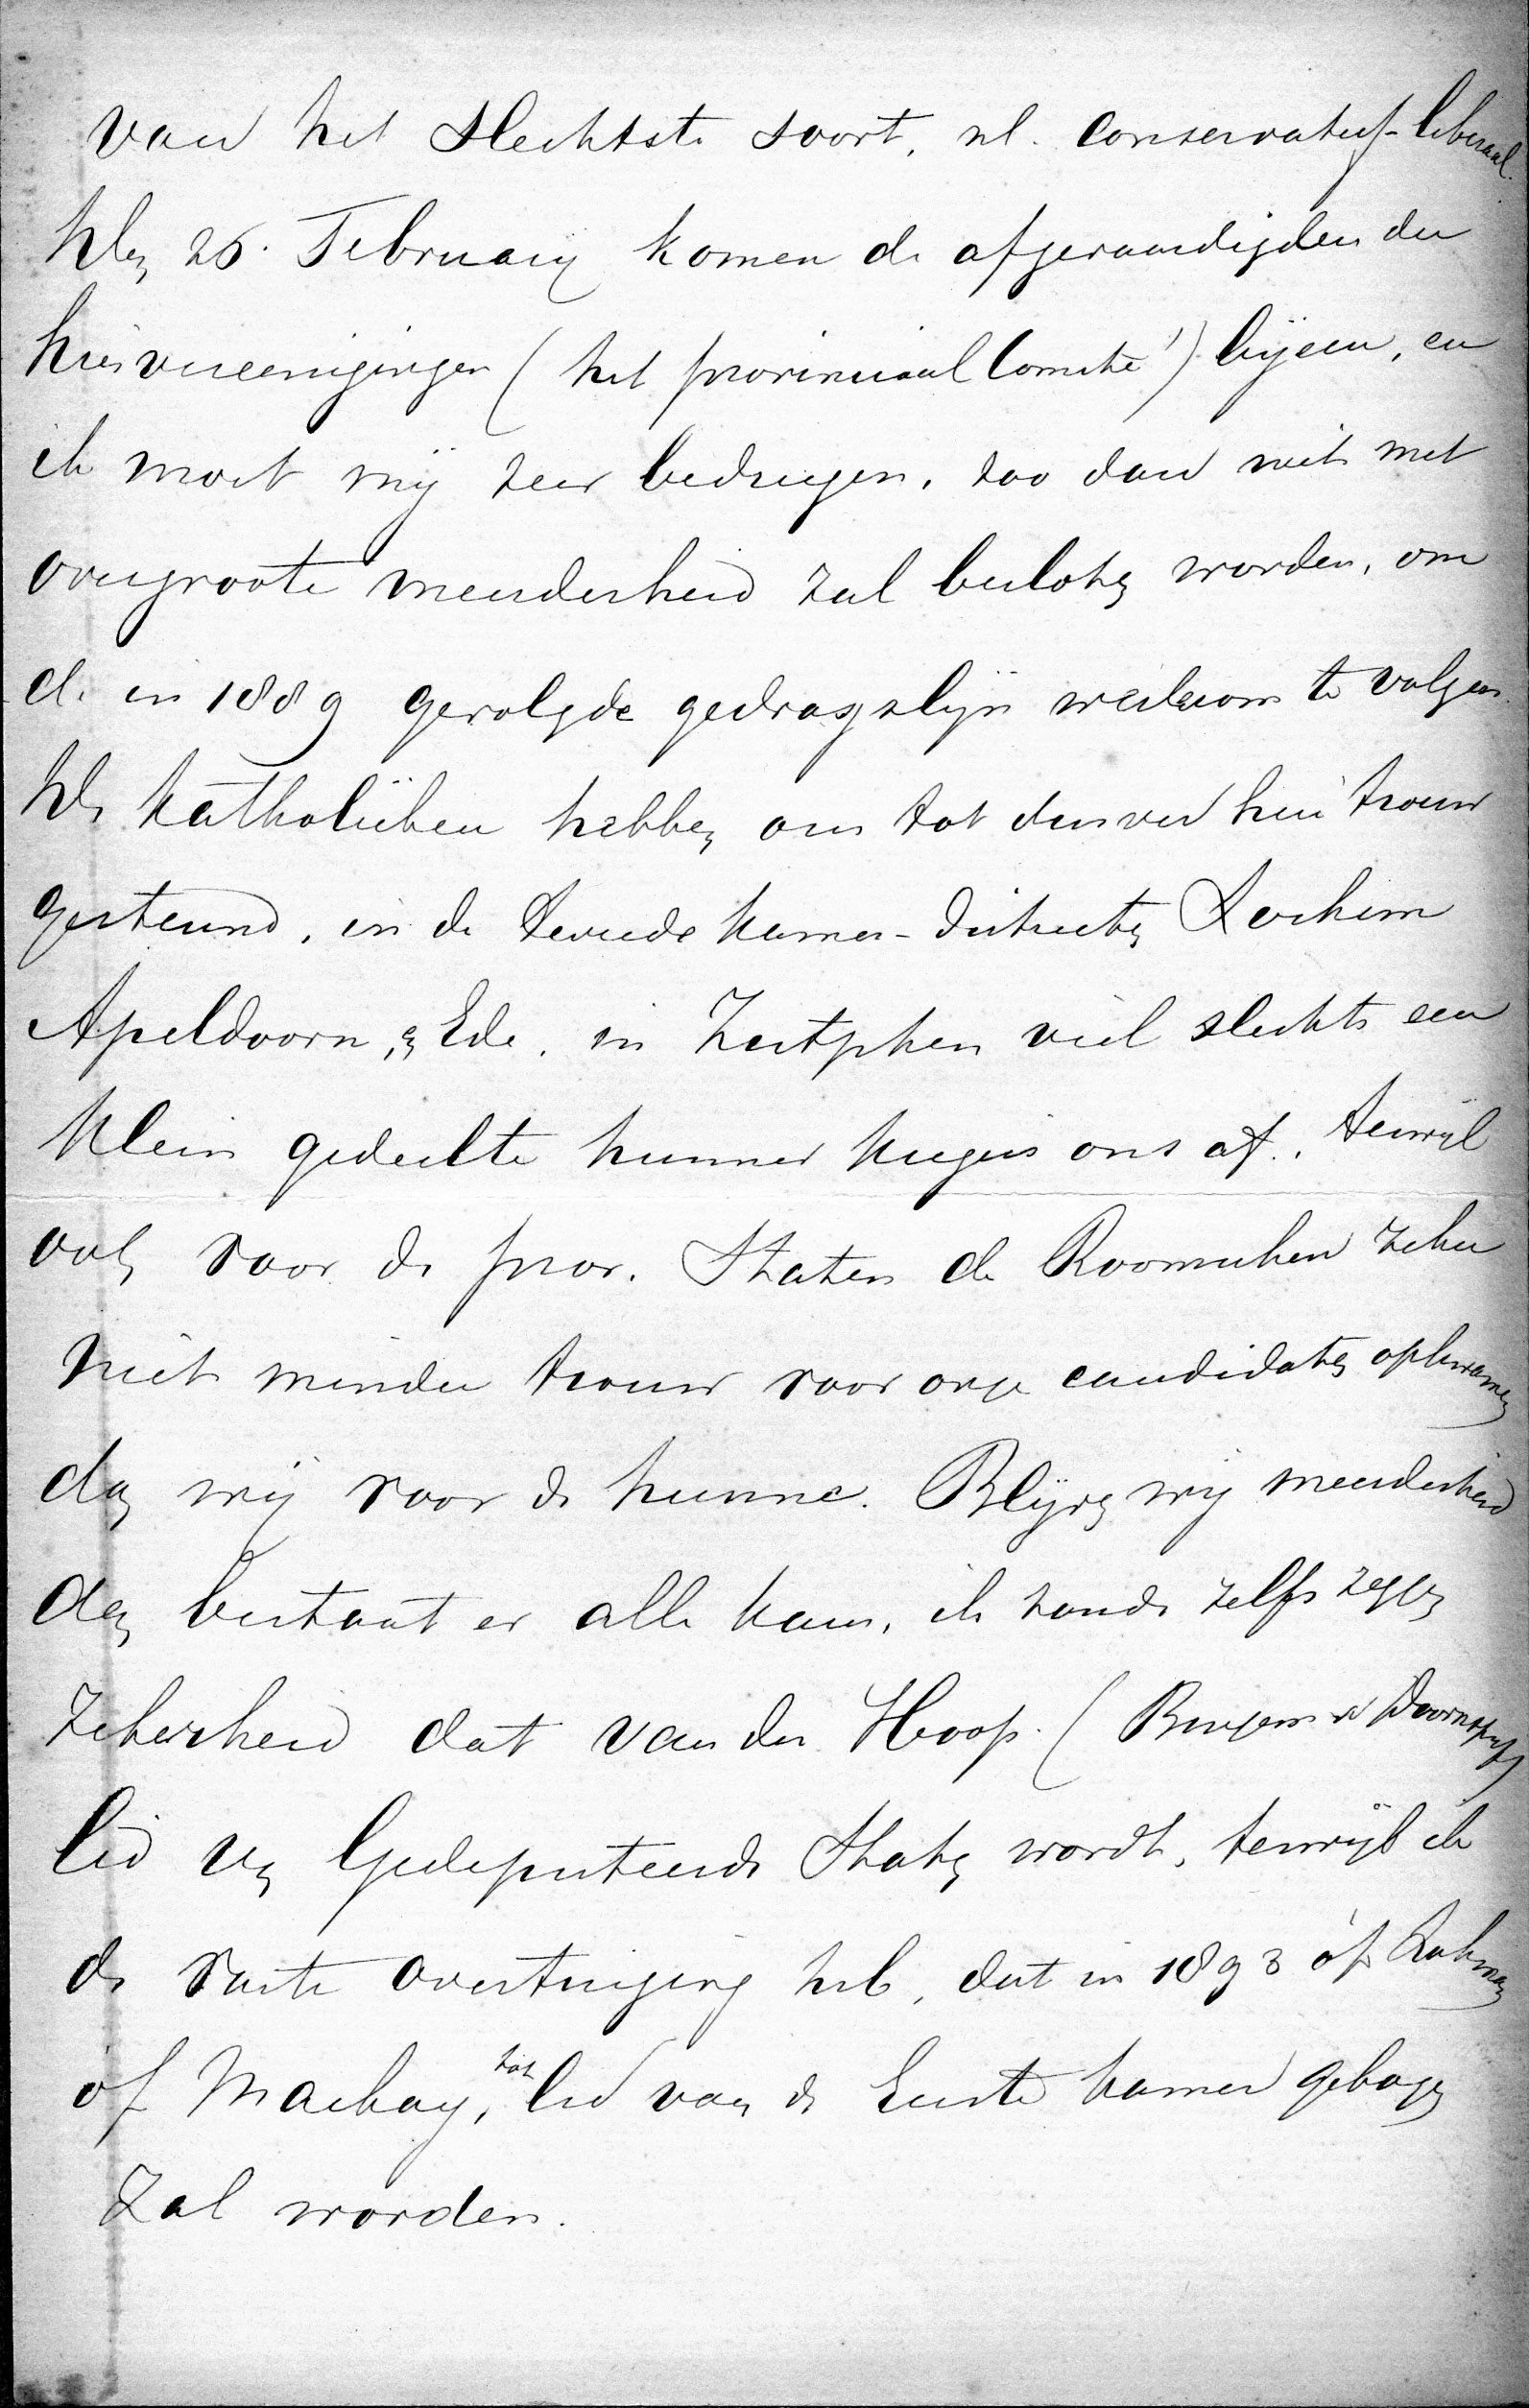 van het slechtste soort, nl. conservatief-liberaal.
Den 26. February komen de afgevaardigden der
kiesvereenigingen (het provinciaal Comité) bijeen, en
ik moet mij zeer bedriegen, zoo dan niet met
overgroote meerderheid zal besloten worden, om
de in 1889 gevolgde gedragslijn wederom te volgen.
De Katholieken hebben ons tot dusver hier trouw
gesteund, in de Tweede Kamer-districten Lochem
Apeldoorn, en Ede. in Zutphen viel slechts een
klein gedeelte hunner kiezers ons af, terwijl
ook voor de prov. Staten de Roomschen zeker
niet minder trouw voor onze candidaten opkwamen
dan wij voor de hunne. Blijven wij meerderheid
dan bestaat er alle kans, ik zoude zelfs zeggen
zekerheid dat van der Hoop (Burgem v Doornspijk)
lid van Gedeputeerde Staten wordt, terwijl ik
de vaste overtuiging heb, dat in 1893 óf Lohman
óf Mackay, tot lid van de Eerste Kamer gekozen
zal worden.